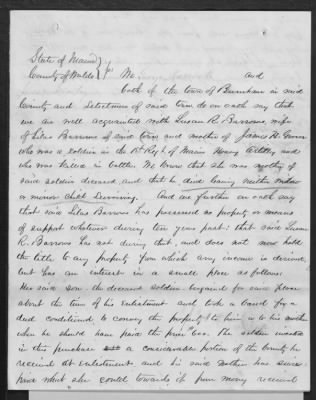 State of Maine }
County of Waldo } ss. We and
both of the town of Burnham in said
County and Selectmen of said town do on oath say that
we are well acquainted with Susan R. Barrows wife
of Silas Barrows of said town and mother of James H.
who was a soldier in the 1st Regt. of Maine Heavy Artillery and
who was killed in battle. We know that she was mother of
said soldier deceased, and that he died leaving neither widow
or minor child surviving. And we further on oath say
that said Silas Barrows has possessed no property or means
of support whatever during ten years past: that said Susan
R. Barrows has not during that, and does not now hold
the title to any property from which any income is derived,
but has an interest in a small place as follows:
Her said son the deceased soldier bargained for said place
about the time of his enlistment and took a bond for a
deed conditioned, to convey the property to him or to his mother
when he should have paid the price. The soldier invested
in the purchase a considerable portion of the bounty he
received at enlistment, and his said mother has since
paid what she could towards it from money received